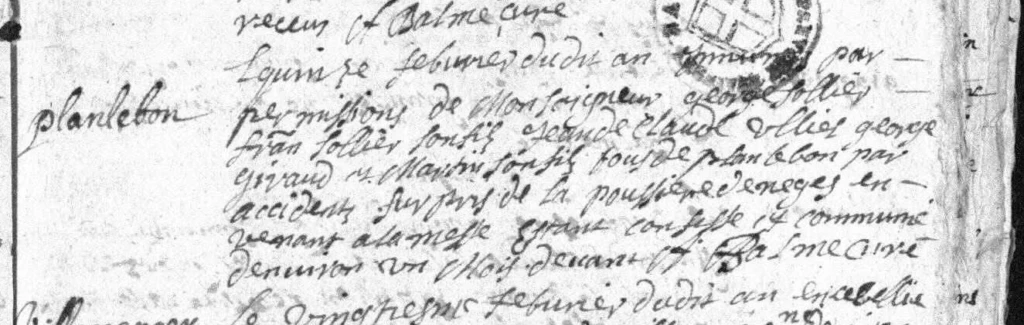 receus Balme curé
Lquinze febvrier dudit an par
planlebon permissions de Monseigneur george sollier
fran sollier son fils Jean de Claude ollier george
giraud et Martin son fils tous de planlebon par
accident surpris de la poussiere de neges en
venant a la messe estant confesse et communié
denviron un Mois devant Balme curé
le vingtiesme febvrier dudit an